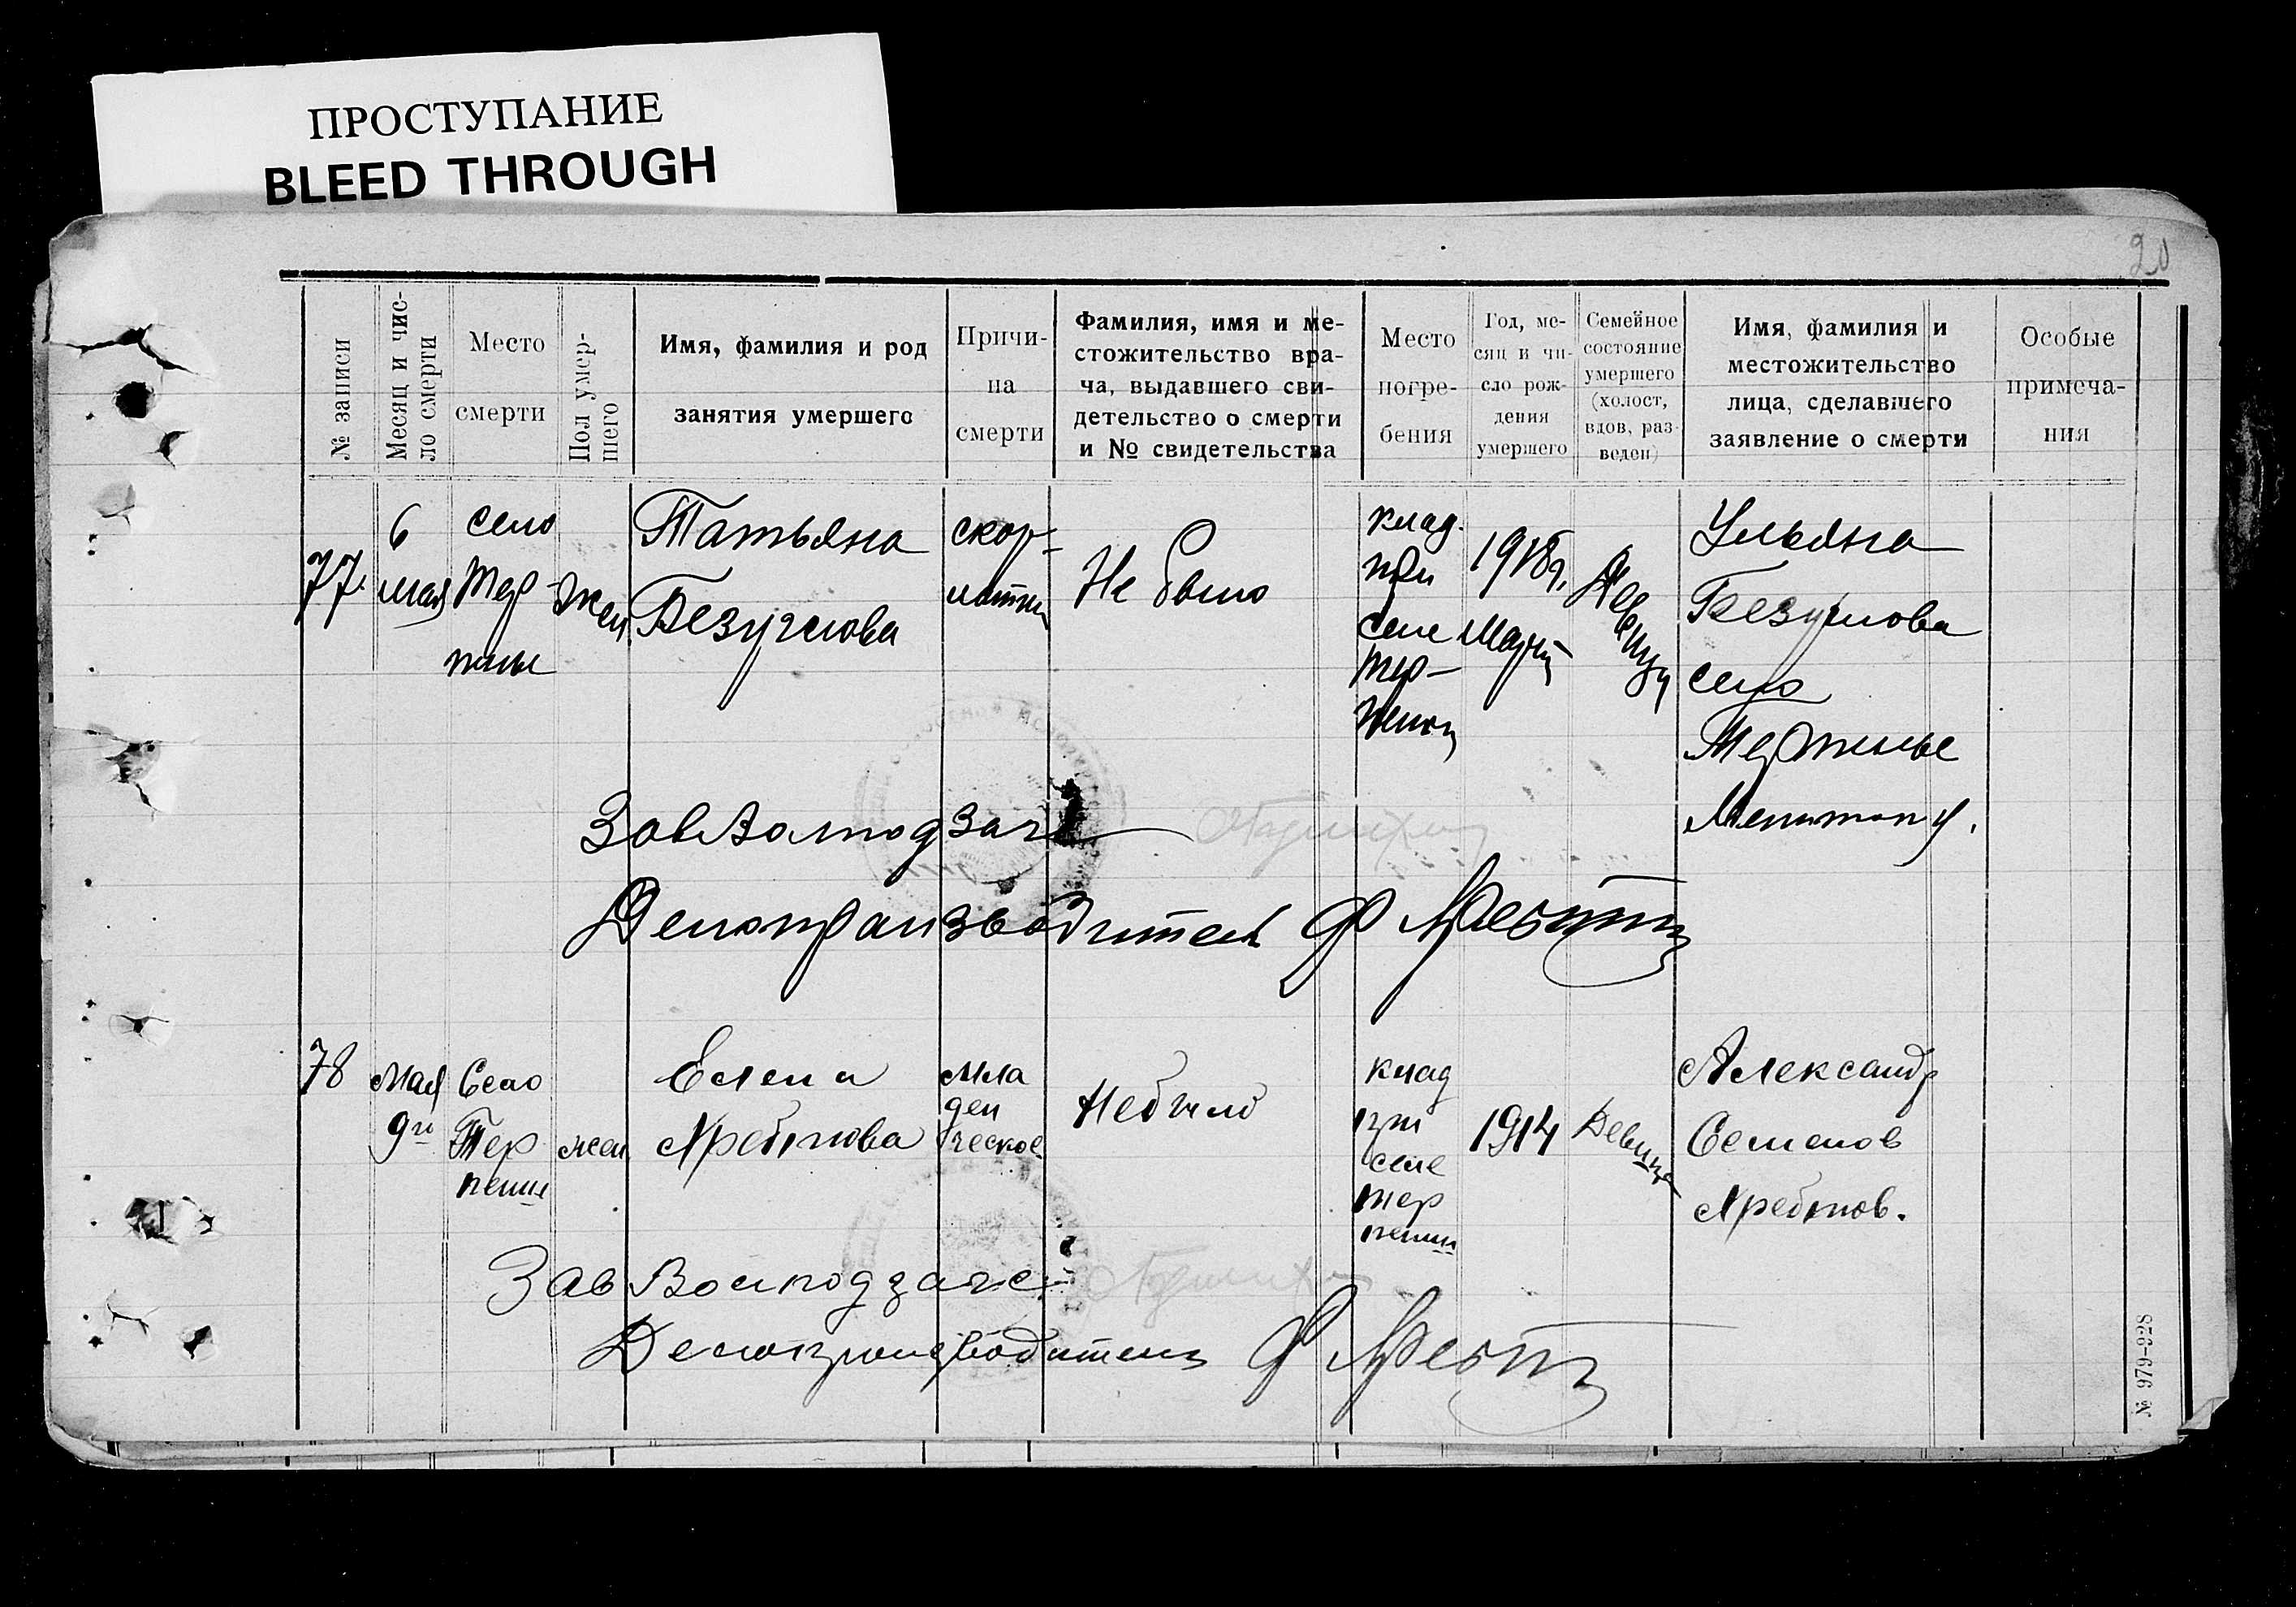 ПРОСТУПАНИЕ
BLEED THROUGH
20
№ записи
Месяц и чис-
ло смерти
Место
смерти
Пол умер-
шего
Имя, фамилия и род
занятия умершего
Причи-
на
смерти
Фамилия, имя и ме-
стожительство вра-
ча, выдавшего сви-
детельство о смерти
и № свидетельства
Место
погре-
бения
Год, ме-
сяц и чи-
сло рож-
дения
умершего
Семейное
состояние
умершего
(холост,
вдов, раз-
веден)
Имя, фамилия и
местожительство
лица, сделавшего
заявление о смерти
Особые
примеча-
ния
77.
6
мая
село
Тер
пенье
жен
Татьяна
Безуглова
скор-
латин
Не было
клад.
при
селе
Тер-
пении
1918г.
Март
Девица
Ульяна
Безуглова
село
Терпенье
Мелитоп у.
Зав Волподзаг
Делопроизводитель Ф
78
Мая
9го
Село
Тер
пение
жен
Елена
Хребтова
Мла
ден
ческое
Небыло
клад
при
селе
Тер
пении
1914
Девица
Александр
Семенов
Хребтов.
Зав Волподзагс
Делопроизводитель Ф
№ 979-928